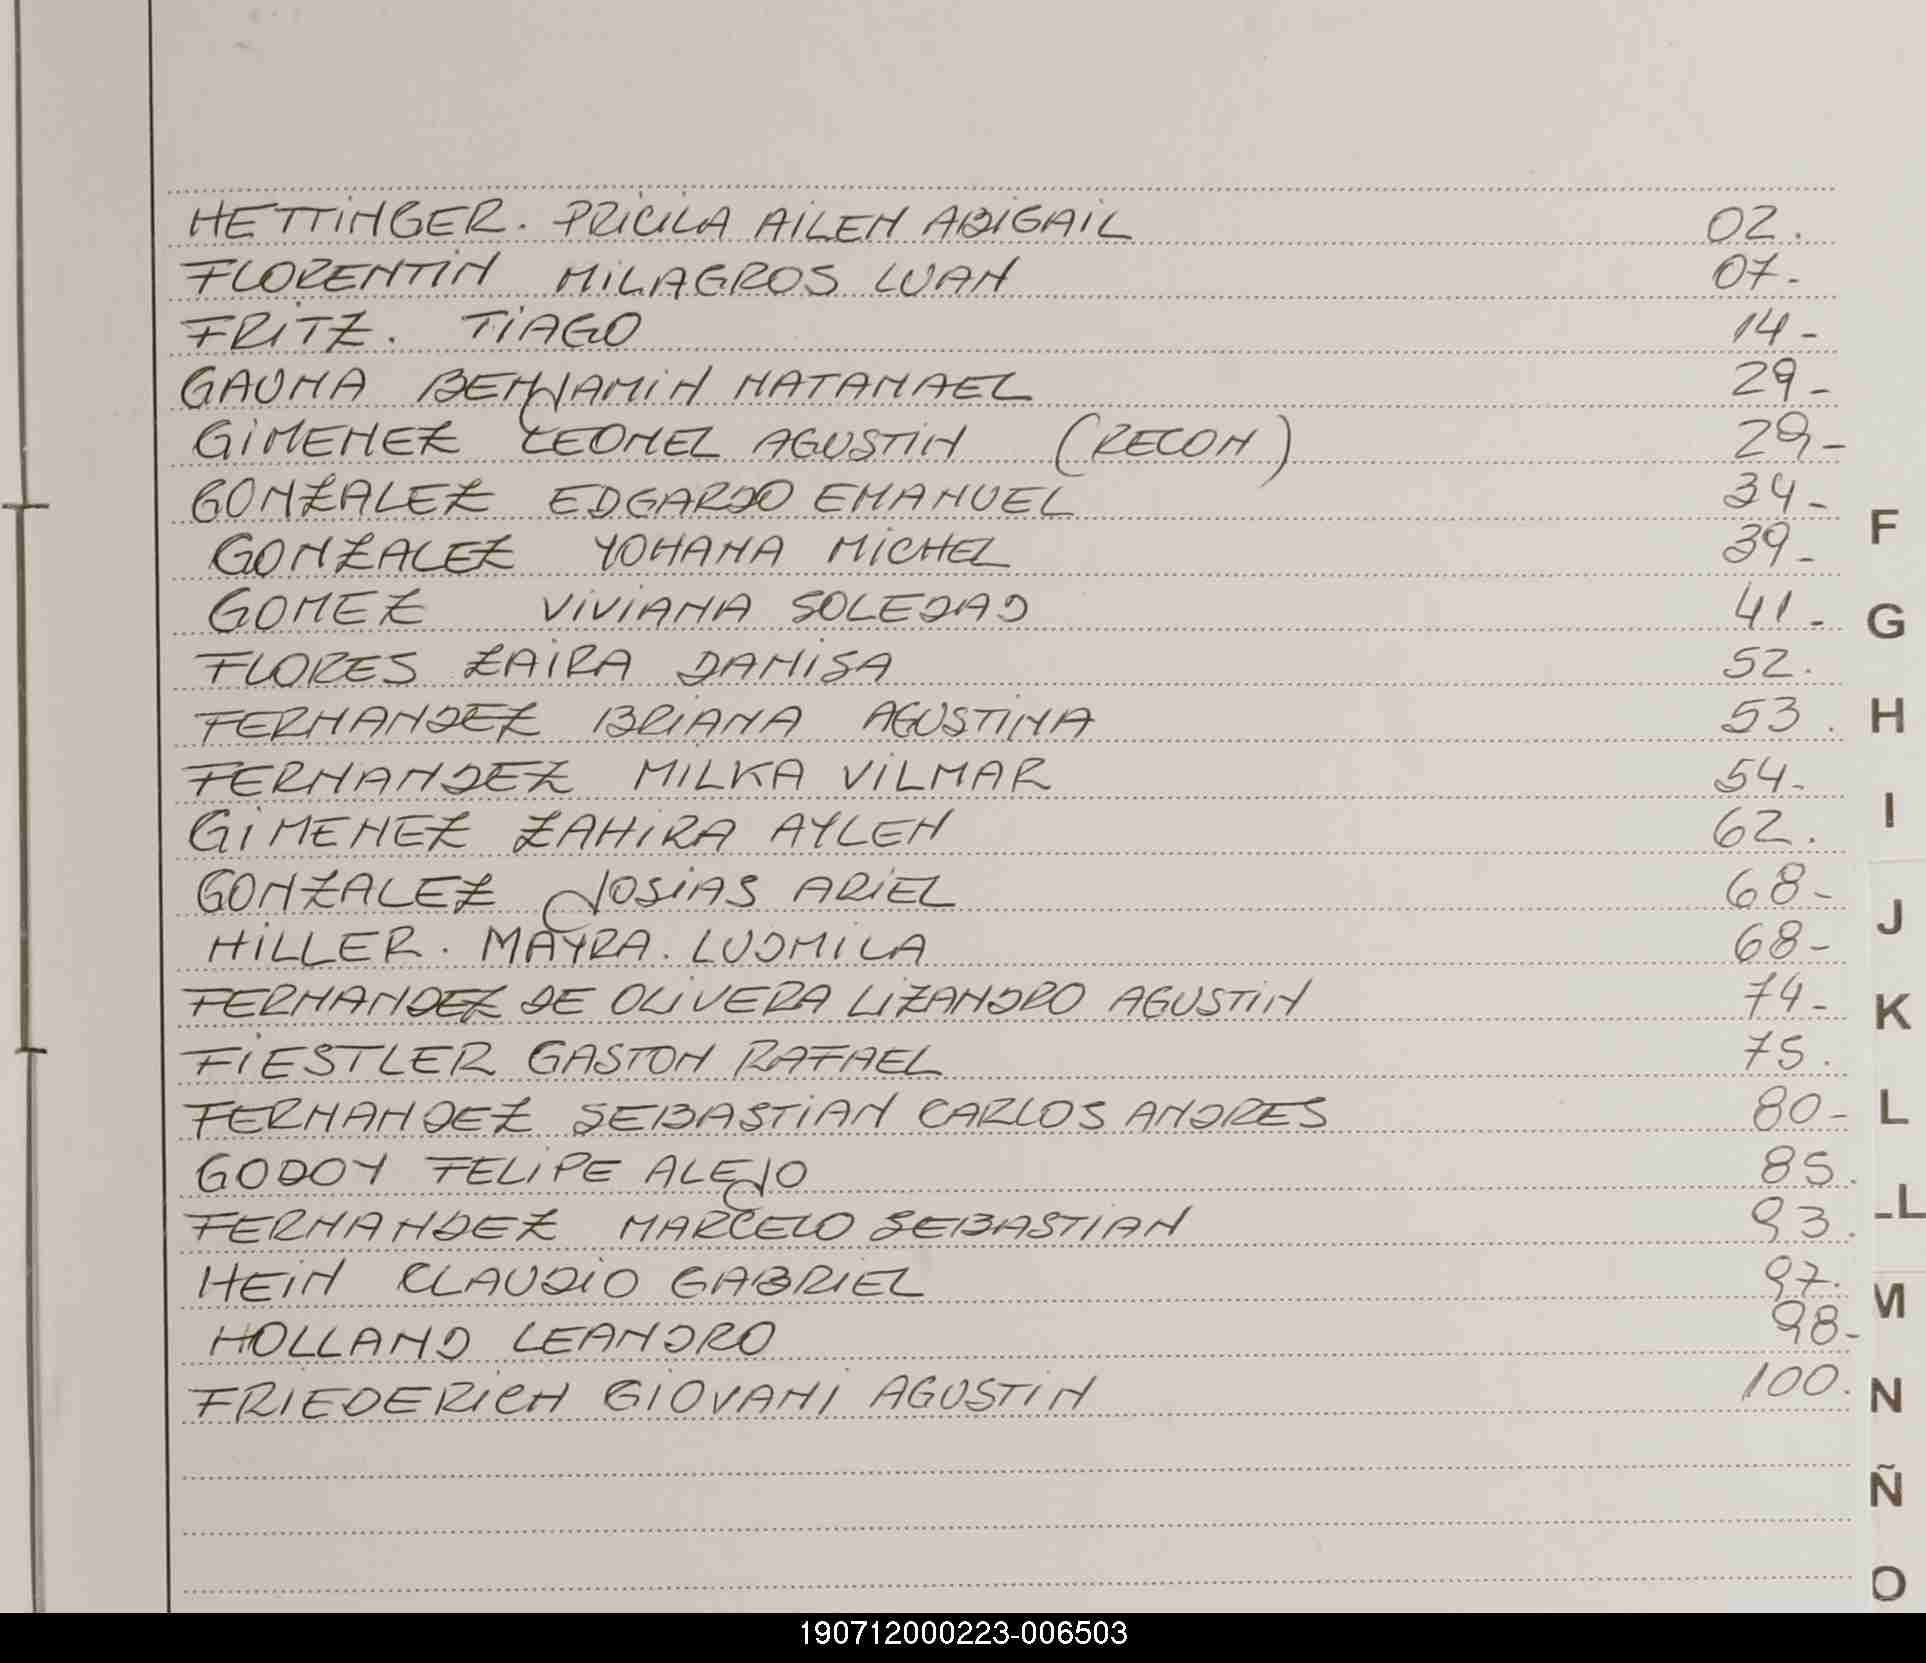 HETTINGER. PRICILA AILEN ABIGAIL 02.
FLORENTIN MILAGROS LUAN 07-
FRITZ. TIAGO 14-
GAUNA BENJAMIN NATANAEL 29-
GIMENEZ LEONEL AGUSTIN (RECON) 29-
GONZALEZ EDGARDO EMANUEL 34-
GONZALEZ YOHANA MICHEL 39-
GOMEZ VIVIANA SOLEDAD 41-
FLORES ZAIRA DANISA 52.
FERNANDEZ BRIANA AGUSTINA 53.
FERNANDEZ MILKA VILMAR 54-
GIMENEZ ZAHIRA AYLEN 62.
GONZALEZ JOSIAS ARIEL 68-
HILLER. MAYRA. LUDMILA 68-
FERNANDEZ DE OLIVERA LIZANDRO AGUSTIN 74-
FIESTLER GASTON RAFAEL 75.
FERNANDEZ SEBASTIAN CARLOS ANDRES 80-
GODOY FELIPE ALEJO 85.
FERNANDEZ MARCELO SEBASTIAN 93.
HEIN CLAUDIO GABRIEL 97.
HOLLAND LEANDRO 98-
FRIEDERICH GIOVANI AGUSTIN 100.
F
G
H
I
J
K
L
LL
M
N
Ñ
O
190712000223-006503